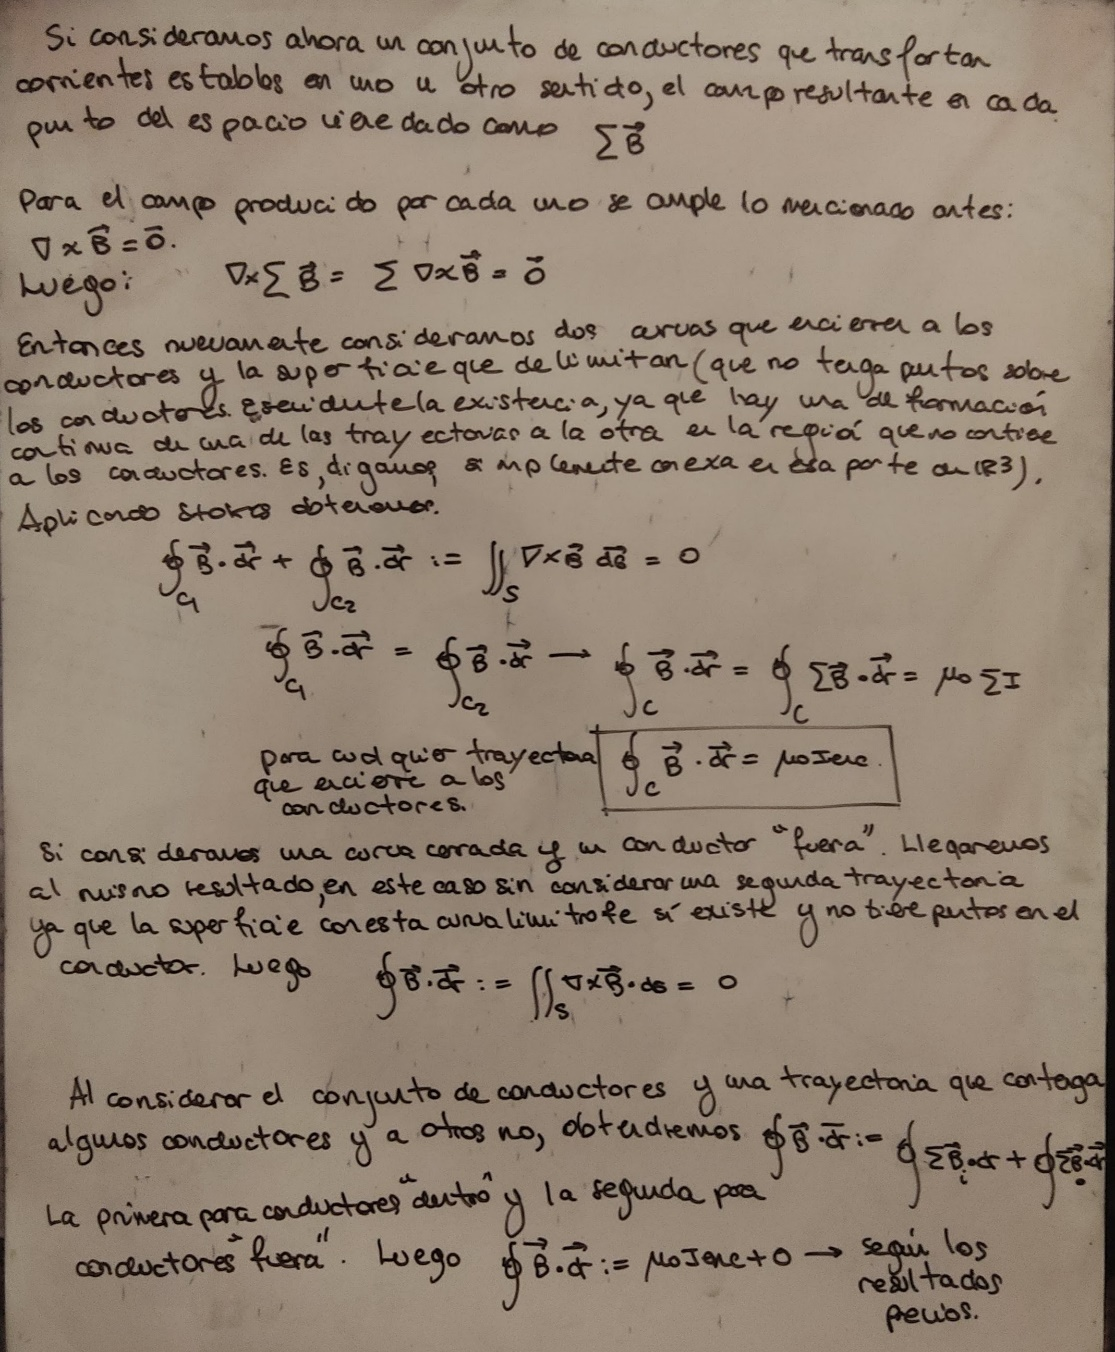 Si consideramos ahora un conjunto de conductores que transportan
corrientes estables en uno u otro sentido, el campo resultante en cada
punto del espacio viene dado como ∑B⃗
Para el campo producido por cada uno se cumple lo mencionado antes:
∇×B⃗ = 0⃗.
Luego: ∇×∑B⃗ = ∑ ∇×B⃗ = 0⃗
Entonces nuevamente consideramos dos curvas que encierren a los
conductores y la superficie que delimitan (que no tenga puntos sobre
los conductores. Es evidente la existencia, ya que hay una deformación
continua de una de las trayectorias a la otra en la región que no contiene
a los conductores. Es, digamos, simplemente conexa en esa parte de ℝ3).
Aplicando Stokes obtenemos.
∮C1 B⃗·dr⃗ + ∮C2 B⃗·dr⃗ := ∬S ∇×B⃗ dS⃗ = 0
∮C1 B⃗·dr⃗ = ∮C2 B⃗·dr⃗ → ∮C B⃗·dr⃗ = ∮C ∑B⃗·dr⃗ = μ0 ∑I
para cualquier trayectoria ∮C B⃗·dr⃗ = μ0 Ienc.
que encierre a los
conductores.
Si consideramos una curva cerrada y un conductor "fuera". Llegaremos
al mismo resultado, en este caso sin considerar una segunda trayectoria
ya que la superficie con esta curva limítrofe sí existe y no tiene puntos en el
conductor. Luego ∮B⃗·dr⃗ := ∬S ∇×B⃗·ds = 0
Al considerar el conjunto de conductores y una trayectoria que contenga
algunos conductores y a otros no, obtendremos ∮B⃗·dr⃗ := ∮∑B⃗i·dr + ∮∑B⃗·dr⃗
La primera para conductores "dentro" y la segunda para
conductores "fuera". Luego ∮B⃗·dr⃗ := μ0 Ienc + 0 → según los
resultados
previos.